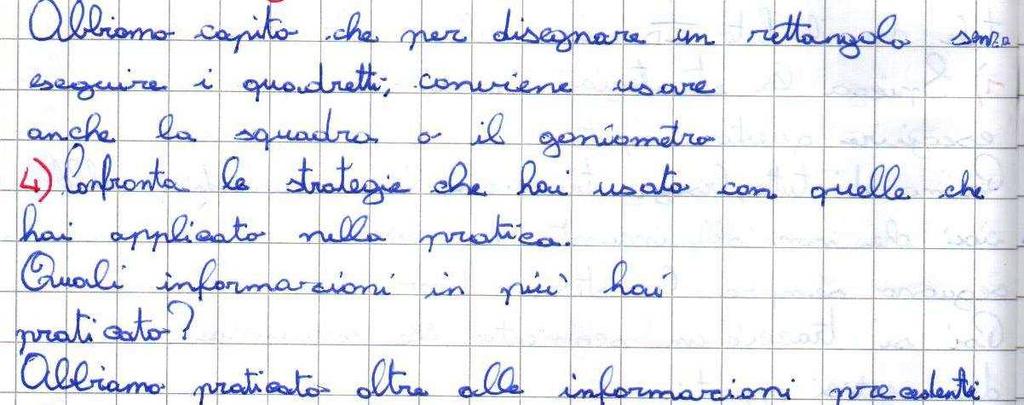 Abbiamo capito che per disegnare un rettangolo senza
eseguire i quadretti, conviene usare
anche la squadra o il goniometro
4) Confronta le strategie che hai usato con quelle che
hai applicato nella pratica.
Quali informazioni in più hai
praticato?
Abbiamo praticato oltre alle informazioni precedenti